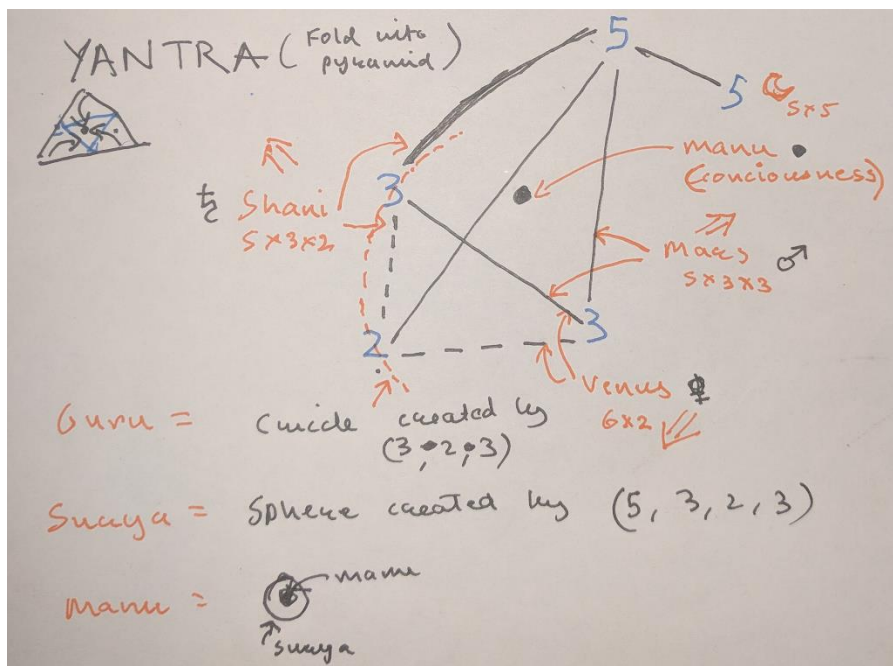 YANTRA (Fold into
pyramid)
5
5
5×5
manu •
(conciousness)
3
♄ Shani
5×3×2
mars ♂
5×3×3
2
3
Venus ♀
6×2
Guru = Circle created by
(3, 2, 3)
Surya = Sphere created by (5, 3, 2, 3)
manu =
manu
surya